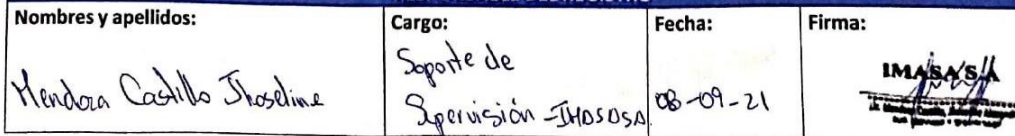 Nombres y apellidos:
Cargo:
Fecha:
Firma:
Mendoza Castillo Jhoseline
Soporte de
Supervisión - IMASASA
08-09-21
IMASA S.A